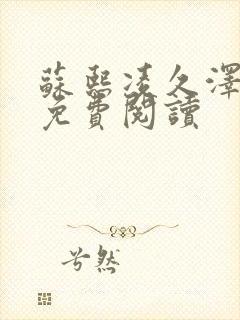 蘇熙凌久澤
免費閱讀
兮然